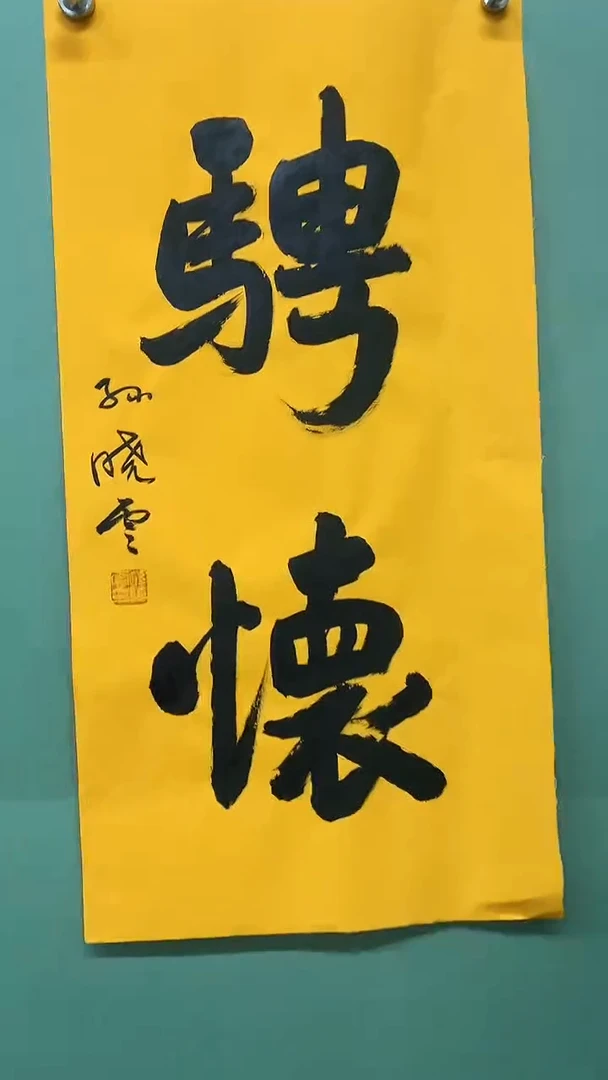 騁懷
孙晓云